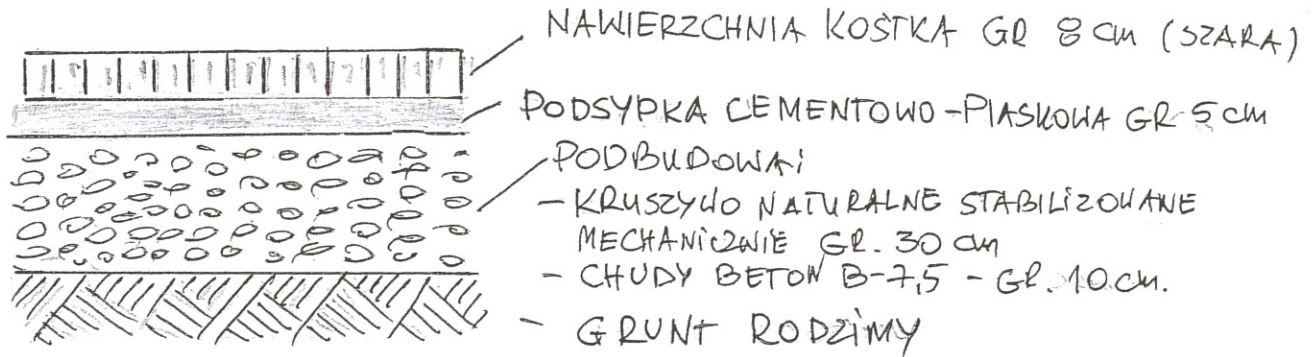 NAWIERZCHNIA KOSTKA GR 8 cm (SZARA)
PODSYPKA CEMENTOWO-PIASKOWA GR 5 cm
PODBUDOWA:
- KRUSZYWO NATURALNE STABILIZOWANE
MECHANICZNIE GR. 30 cm
- CHUDY BETON B-7,5 - GR. 10 cm.
- GRUNT RODZIMY